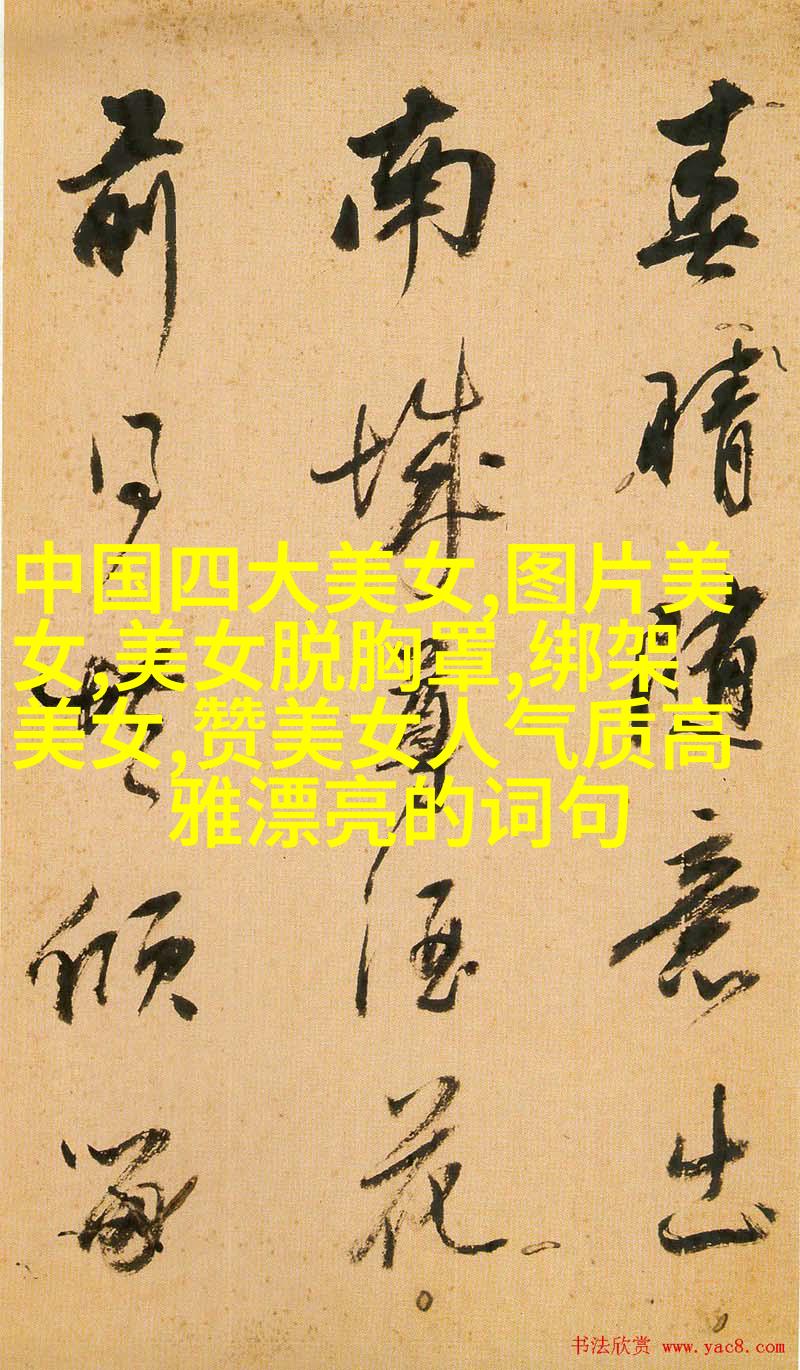 春晴隨意出
南城尊酒花
前共傾
中国四大美女,图片美
女,美女脱胸罩,绑架
美女,赞美女人气质高
雅漂亮的词句
书法欣赏 www.yac8.com